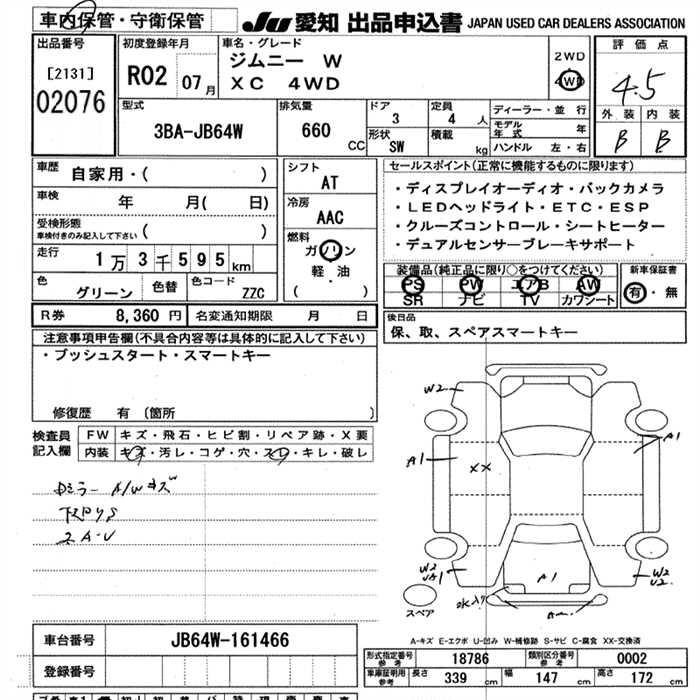 車内保管・守衛保管
JU 愛知 出品申込書 JAPAN USED CAR DEALERS ASSOCIATION
出品番号
[2131]
02076
初度登録年月
R02 07月
車名・グレード
ジムニー W
XC 4WD
2WD
4WD
評価点
4.5
外装 内装
B B
型式
3BA-JB64W
排気量
660 CC
ドア
3
形状
SW
定員
4 人
積載 kg
ディーラー・並行
モデル年式 年
ハンドル 左・右
車歴 自家用・( )
車検 年 月( 日)
受検形態
車検付きのみ記入して下さい ( )
走行 1万3千595km
色 グリーン 色替 色コード ZZC
シフト
AT
冷房
AAC
燃料
ガソリン
軽・油
( )
セールスポイント(正常に機能するものに限ります)
・ディスプレイオーディオ・バックカメラ
・LEDヘッドライト・ETC・ESP
・クルーズコントロール・シートヒーター
・デュアルセンサーブレーキサポート
装備品(純正品に限り○をつけてください)
PS PW エアB AW
SR ナビ TV カワシート
新車保証書
有・無
R券 8,360円 名変通知期限 月 日
後日品
保、取、スペアスマートキー
注意事項申告欄(不具合内容等は具体的に記入して下さい)
・プッシュスタート・スマートキー
修復歴 有 (箇所 )
検査員記入欄
FW キズ・飛石・ヒビ割・リペア跡・X要
内装 キズ・汚レ・コゲ・穴・スレ・キレ・破レ
ロミラー A/Wキズ
W2
A1
XX
A1
W2
A1
W2
スペア
A-キズ E-エクボ U-凹み W-補修跡 S-サビ C-腐食 XX-交換済
車台番号 JB64W-161466
登録番号
型式指定番号 参考 18786 類別区分番号 参考 0002
車庫証明用 参考 長さ 339 cm 幅 147 cm 高さ 172 cm